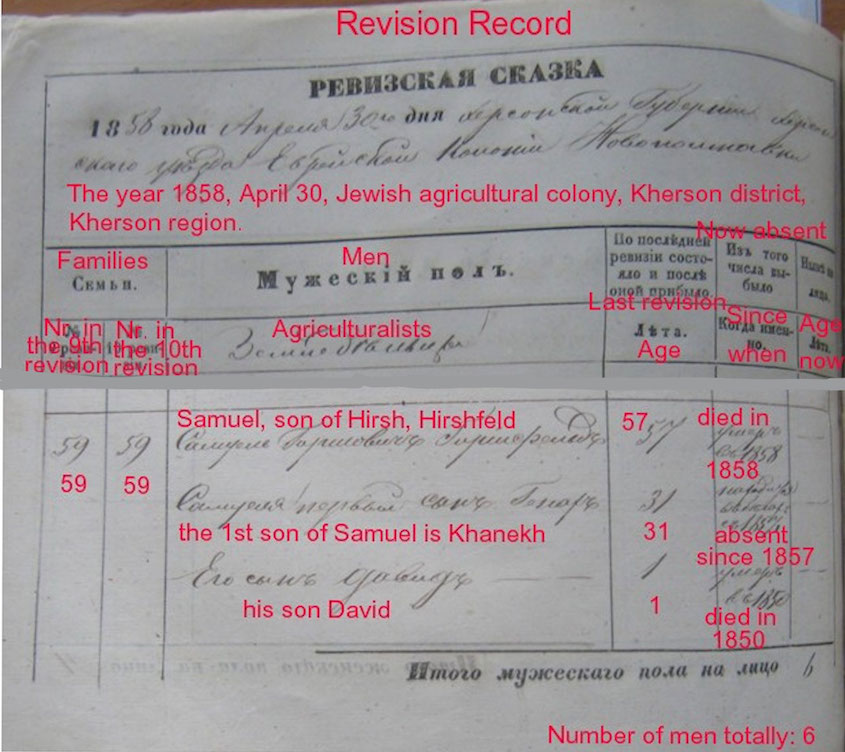 Revision Record
РЕВИЗСКАЯ СКАЗКА
1858 года Апреля 30го дня Херсонской Губернии Херсон-
скаго уезда Еврейской Колонии Новополтавки
The year 1858, April 30, Jewish agricultural colony, Kherson district,
Kherson region.
Families
Семьи.
Men
Мужескій полъ.
По послѣдней
ревизіи состо-
яло и послѣ
оной прибыло.
Now absent
Изъ того
числа вы-
было
Last revision
Nr. in
the 9th
revision
Nr. in
the 10th
revision
Agriculturalists
Лѣта.
Age
Since
Когда имен-
но.
when
Age
now
Samuel, son of Hirsh, Hirshfeld
57
died in
59
59
Самуель Гиршовичъ Гиршфельдъ
57
умеръ
въ 1858
1858
59
59
Самуеля первый сынъ
31
the 1st son of Samuel is Khanekh
31
absent
since 1857
Его сынъ Давидъ
1
умеръ
въ 1850
his son David
1
died in
1850
Итого мужескаго пола на лицо 6
Number of men totally: 6